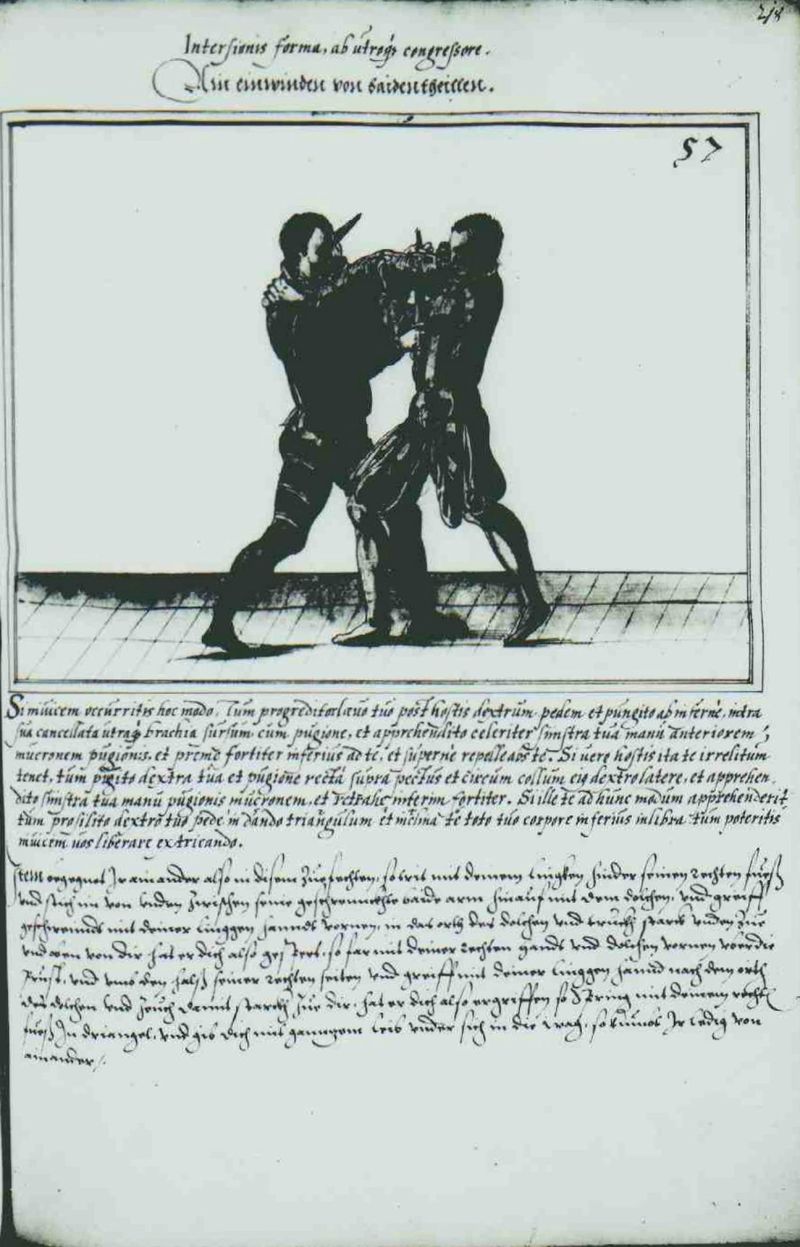 218
Intersionis forma, ab utroq́ꝫ congressore.
Ain einwinden von baiden theillen.
57
Si inuicem occurritis hoc modo, tum progreditor laeuo tuo post hostis dextrum pedem et pungito ab inferne, intra
sua cancellata utraq́ꝫ brachia sursum cum pugione, et apprehendito celeriter sinistra tua manu anteriorem
mucronem pugionis, et preme fortiter inferius ad te, et superne repelle abs te. Si uero hostis ita te irretitum
tenet, tum pugito dextra tua et pugione recta supra pectus et circum collum eiꝰ dextro latere, et apprehen
dito sinistra tua manu pugionis mucronem, et retrahe interim fortiter. Si ille te ad hunc modum apprehenderit
tum prosilito dextro tuo pede in dando triangulum et inclina te toto tuo corpore inferius in libra tum poteritis
inuicem uos liberare extricando.
Item begegnet Ir ainander also in disem Zuefechten, so trit mit deinem linggen hinder seinen rechten fuess
vnd stich im von vnden zwischen seine geschrenckte baide arm hinauf mit dem dolchen, vnd greiff
geschwindt mit deiner linggen handt vornen, in das orth des dolchen vnd truckh starck vnden zue
vnd oben von dir hat er dich also gefast, so far mit deiner rechten handt vnd dolchen vornen vber die
Brust, vnd vmb den halss seiner rechten seiten vnd greiff mit deiner linggen hannd nach dem orth
des dolchen vnd zeuch damit starckh zue dir, hat er dich also ergriffen so spring mit deinem rechten
fuess In driangel, vnd gib dich mit ganntzem leib vnder sich in die wag, so kumbt Ir ledig von
ainander